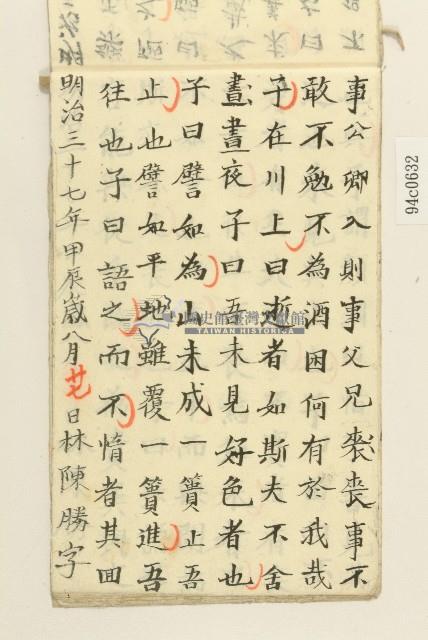 事公卿入則事父兄喪喪事不
敢不勉不為酒困何有於我哉
子在川上曰逝者如斯夫不舍
晝晝夜子曰吾未見好色者也
子曰譬如為山未成一簣止吾
止也譬如平地雖覆一簣進吾
往也子曰語之而不惰者其回
明治三十七年甲辰歲八月廿日林陳勝字
94c0632
國史館臺灣文獻館
TAIWAN HISTORICA